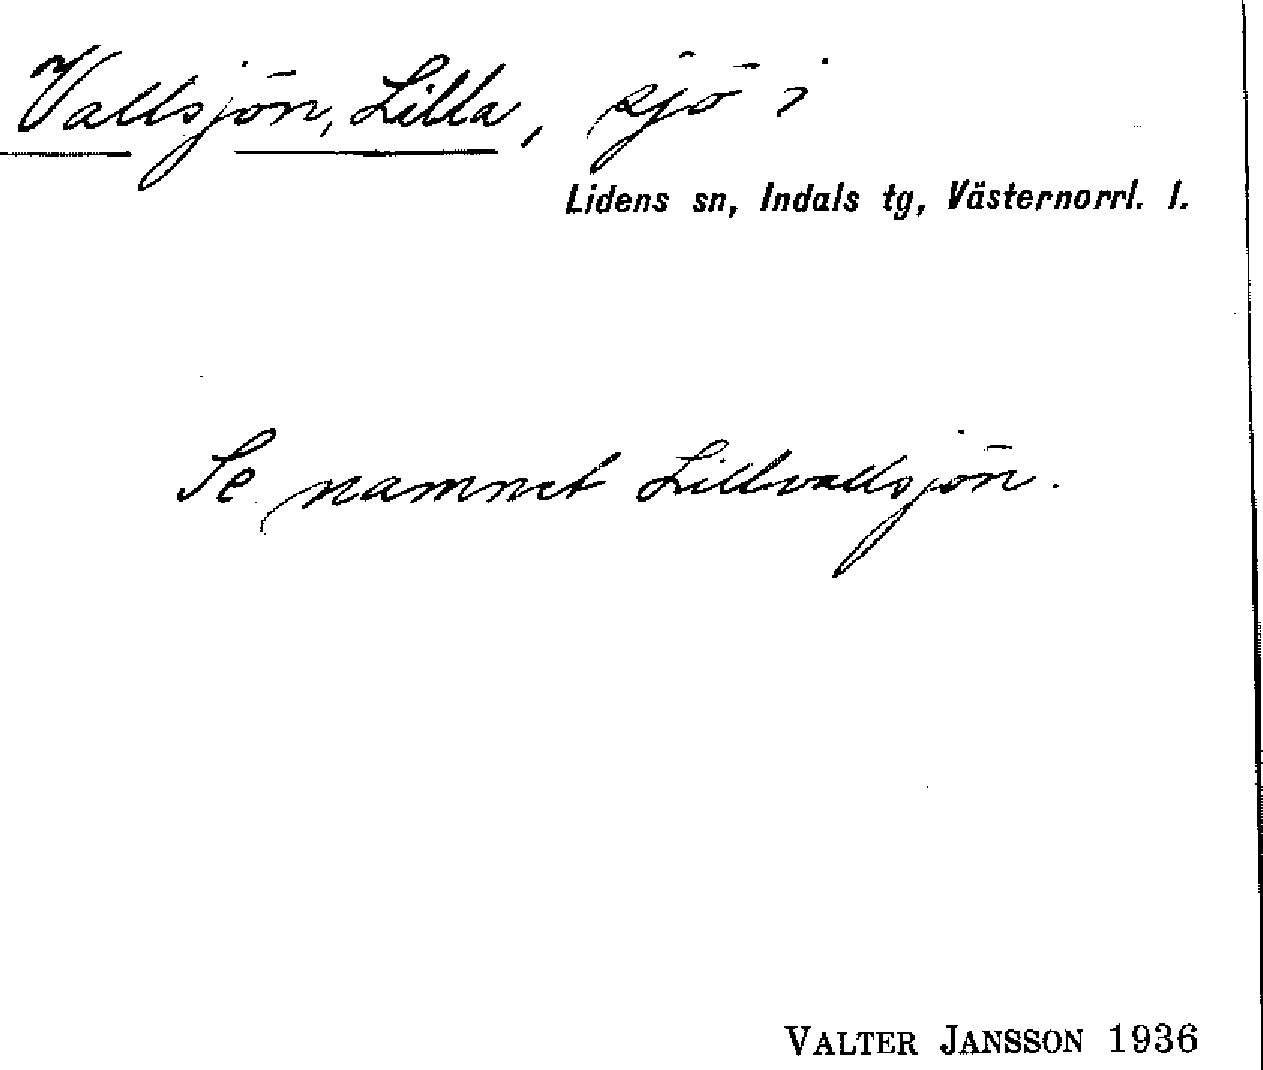 Vallsjön, Lilla, sjö i
Lidens sn, Indals tg, Västernorrl. l.
Se namnet Lillvallsjön.
VALTER JANSSON 1936